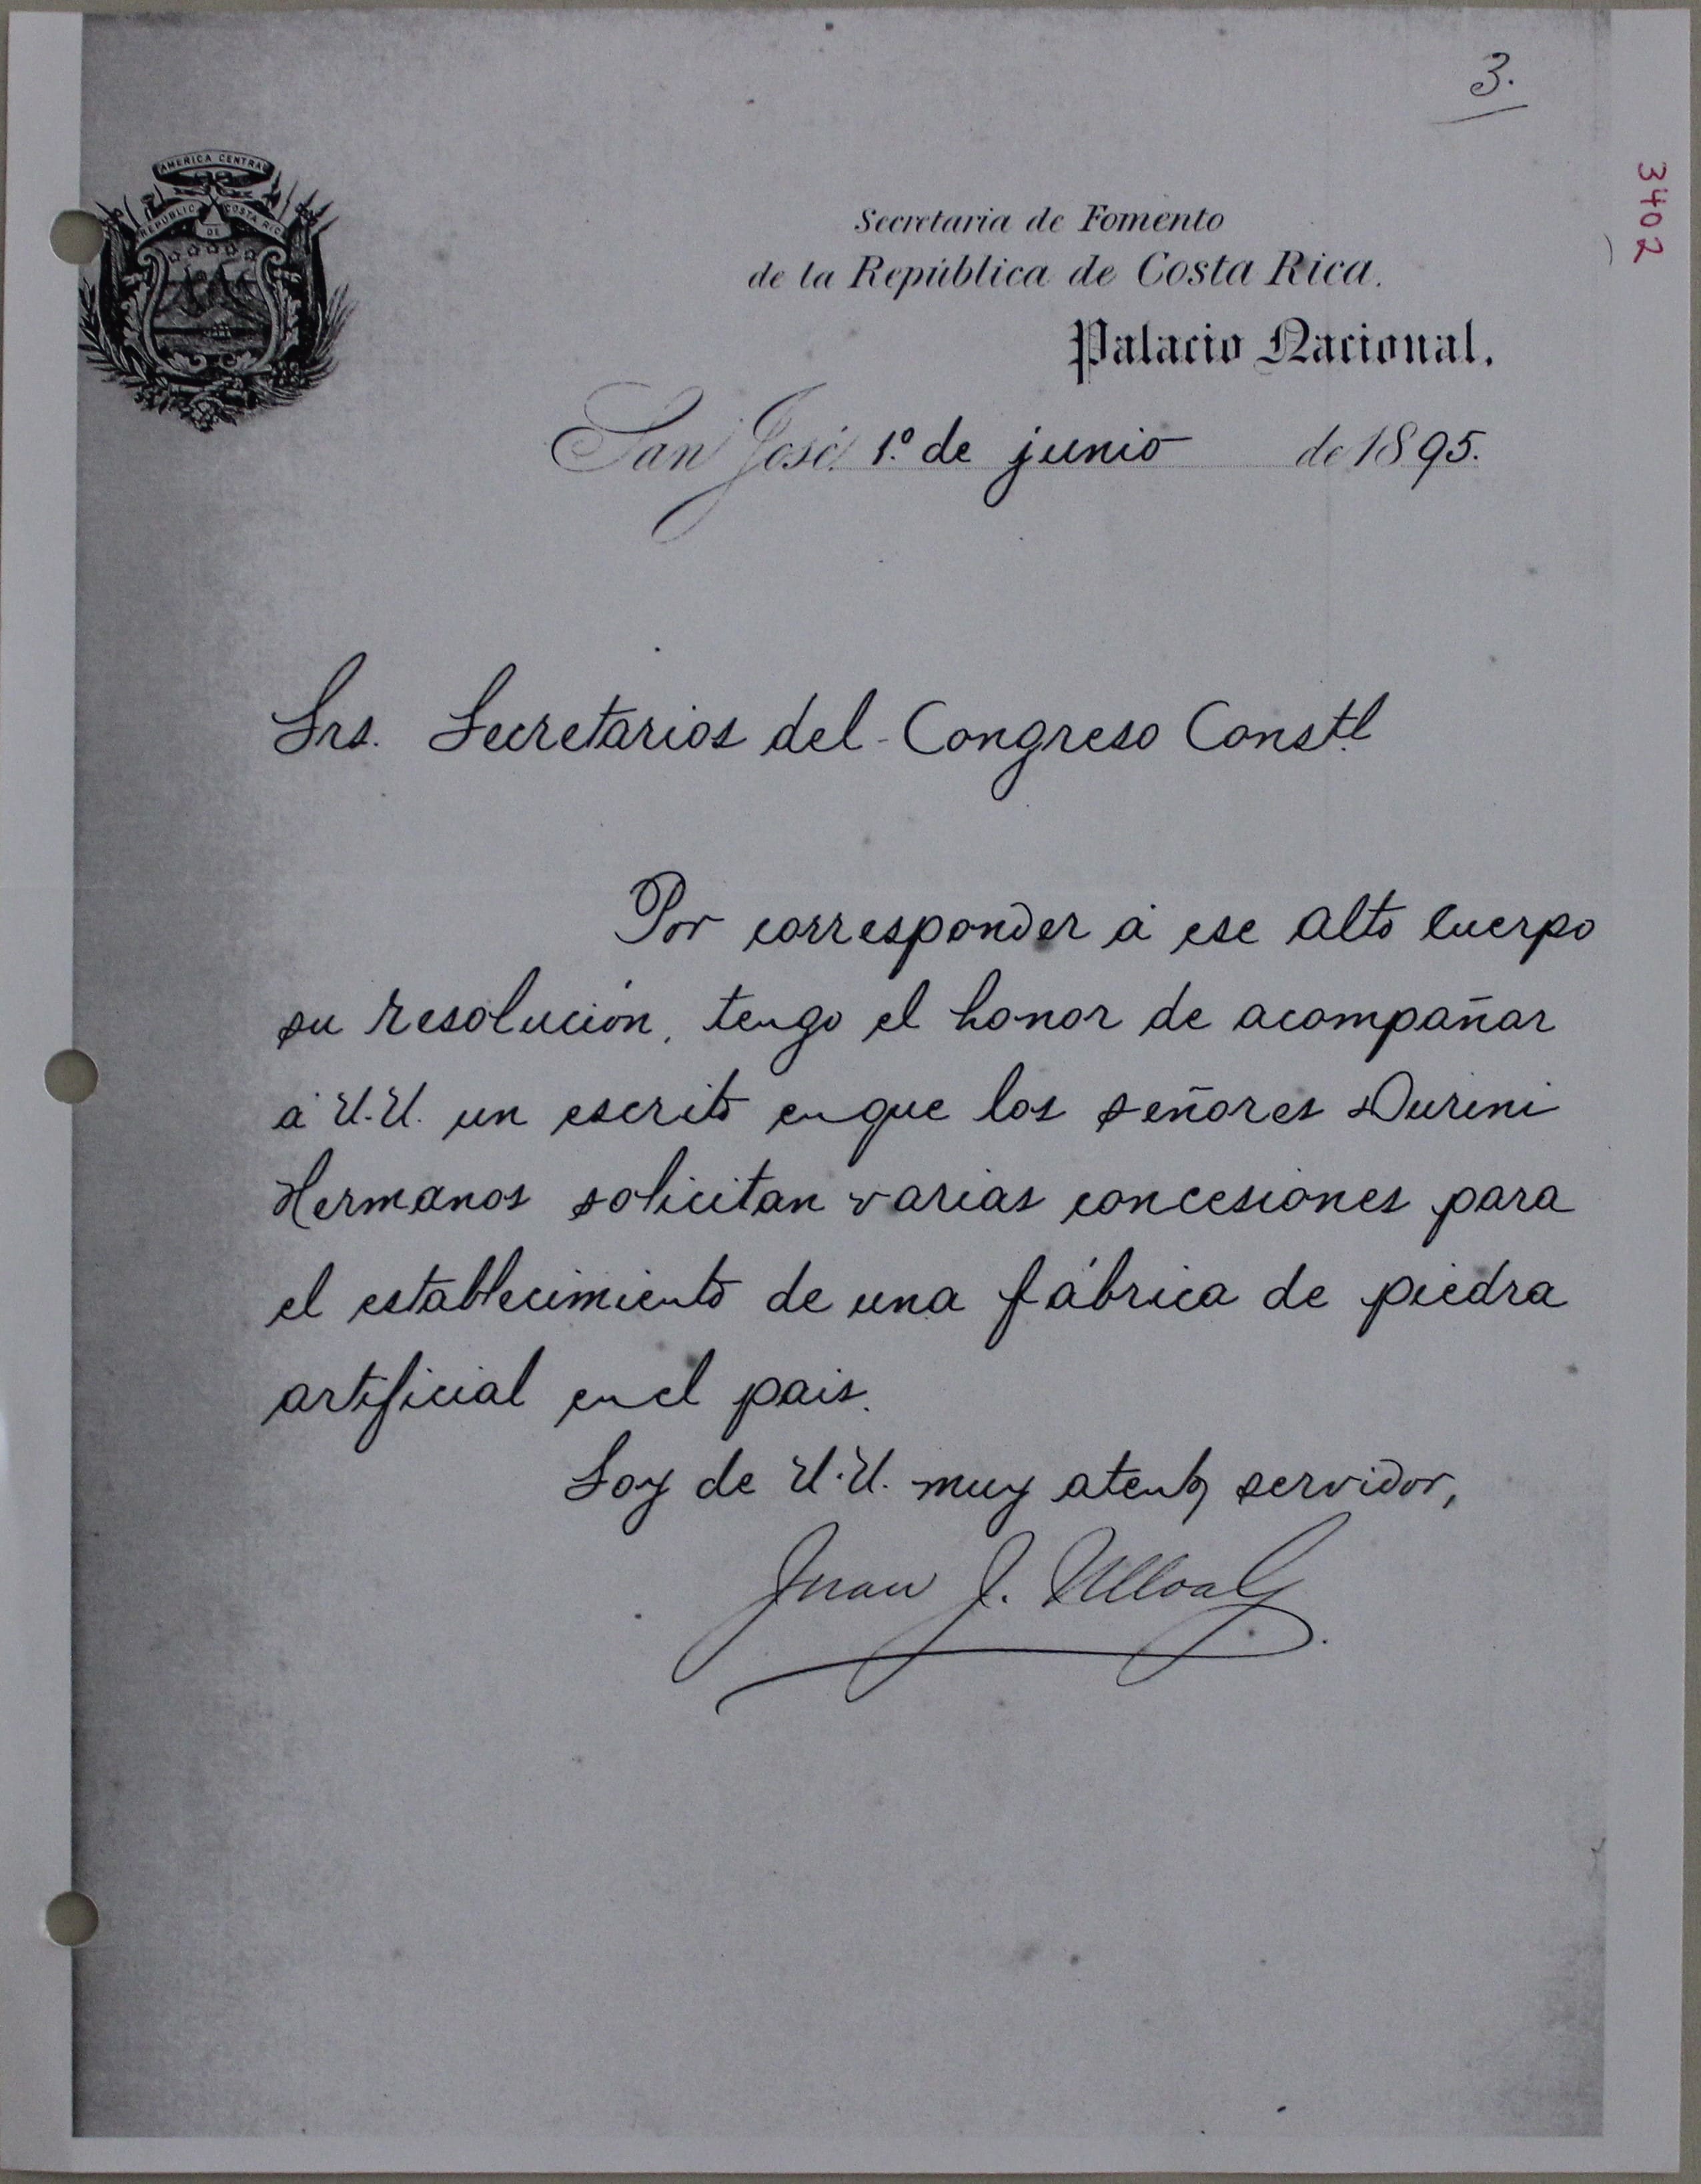 3.
3402
AMERICA CENTRAL
REPUBLICA DE COSTA RICA
Secretaria de Fomento
de la República de Costa Rica.
Palacio Nacional.
San José, 1.º de junio de 1895.
Srs. Secretarios del Congreso Constl
Por corresponder á ese alto cuerpo
su resolución, tengo el honor de acompañar
á U.U. un escrito en que los señores Durini
Hermanos solicitan varias concesiones para
el establecimiento de una fábrica de piedra
artificial en el pais.
Soy de U.U. muy atento servidor,
Juan J. Ulloa G.